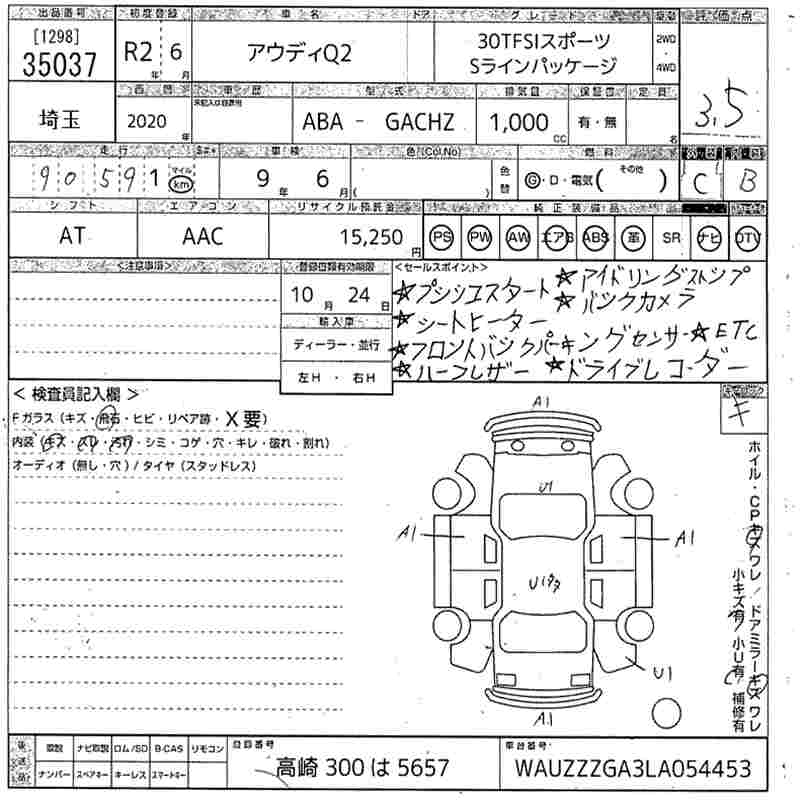 出品番号 初度登録 車名 ドア グレード 駆動 評価点
[1298]
35037
R2 年 6 月
アウディQ2
30TFSIスポーツ
Sラインパッケージ
2WD
4WD
3.5
西暦 車歴 型式 排気量 保証書 定員
埼玉
2020 年
未記入は自家用
ABA - GACHZ
1,000 CC
有・無
名
走行 車検 色(Col.No) 燃料 外装 内装
90,591 マイル km
9 年 6 月
( )
色替
G・D・電気( その他 )
C
B
シフト エアコン リサイクル預託金 純正装備品
AT
AAC
15,250 円
PS PW AW エアB ABS 革 SR ナビ DTV
<注意事項>
登録書類有効期限
10 月 24 日
輸入車
ディーラー・並行
左H・右H
<セールスポイント>
★プッシュスタート ★アイドリングストップ
★シートヒーター ★バックカメラ
★フロントバックパーキングセンサー ★ETC
★ハーフレザー ★ドライブレコーダー
<検査員記入欄>
Fガラス(キズ・飛石・ヒビ・リペア跡・X要)
内装(キズ・スレ・汚れ・シミ・コゲ・穴・キレ・破れ・割れ)
オーディオ(無し・穴)/タイヤ(スタッドレス)
キ
A1
U1
A1
A1
U1多数
U1
A1
ホイル・CPキズワレ/ドアミラーキズワレ
小キズ有/小U有/補修有
取説 ナビ取説 ロム/SD B-CAS リモコン
ナンバー スペアキー キーレス スマートキー
登録番号
高崎 300 は 5657
車台番号
WAUZZZGA3LA054453